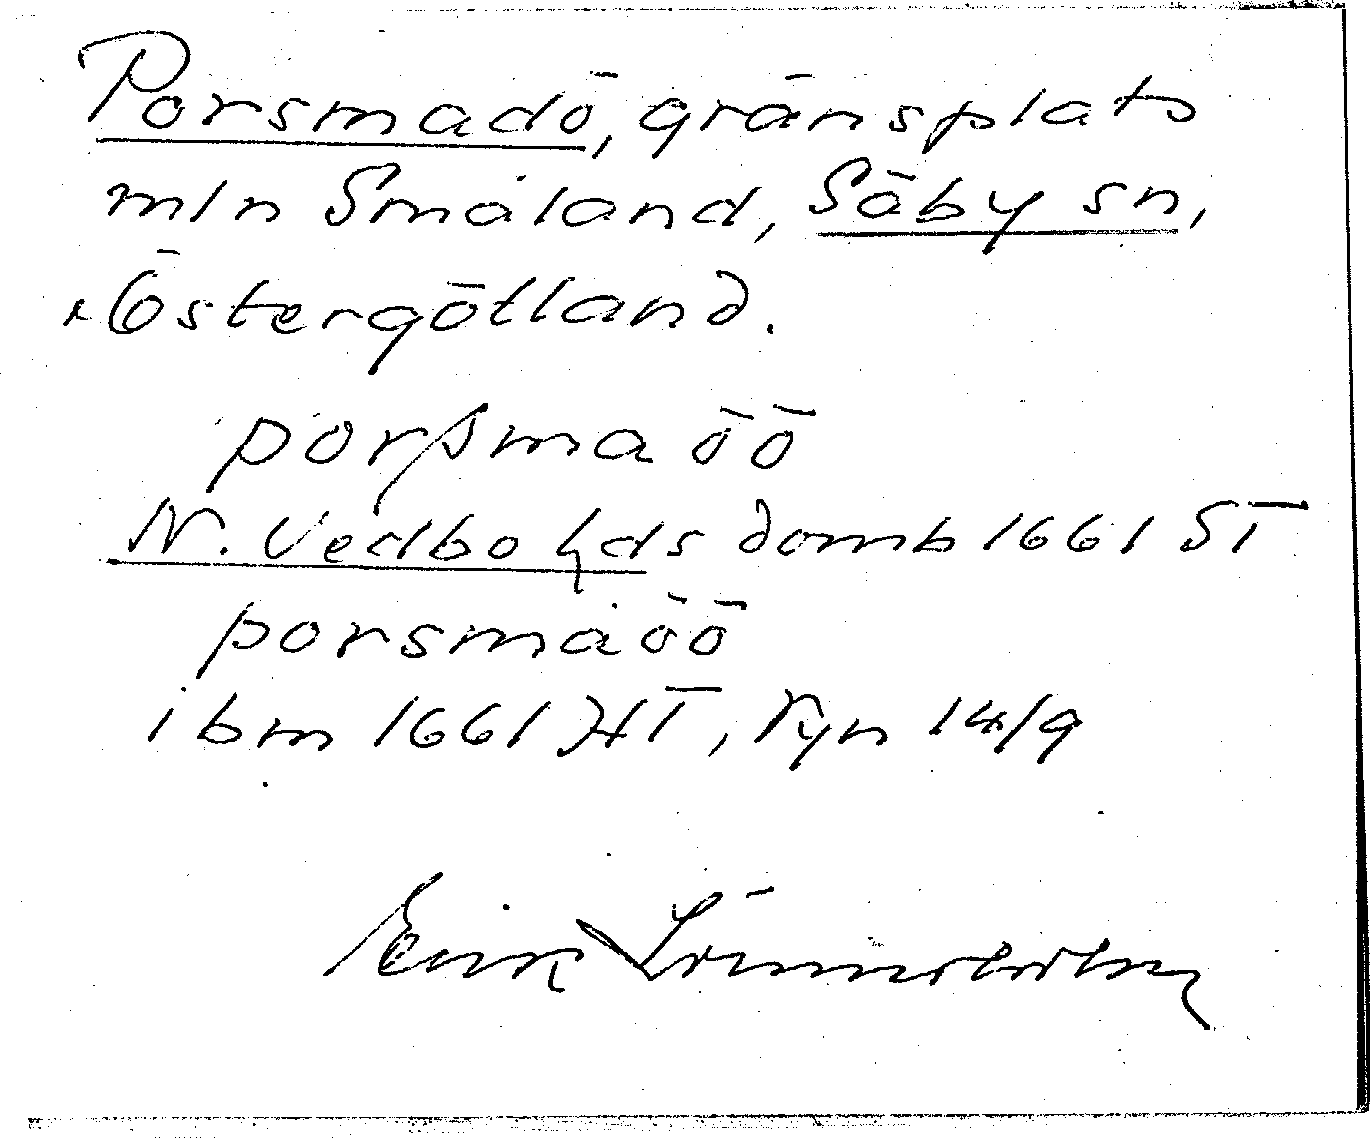 Porsmadö, gränsplats
mln Småland, Säby sn,
o. Östergötland.
porſsmaöö
N. Vedbo hds domb 1661 ST
porsmåöö
ibm 1661 HT, ryn 14/9
Erik Lönnerholm